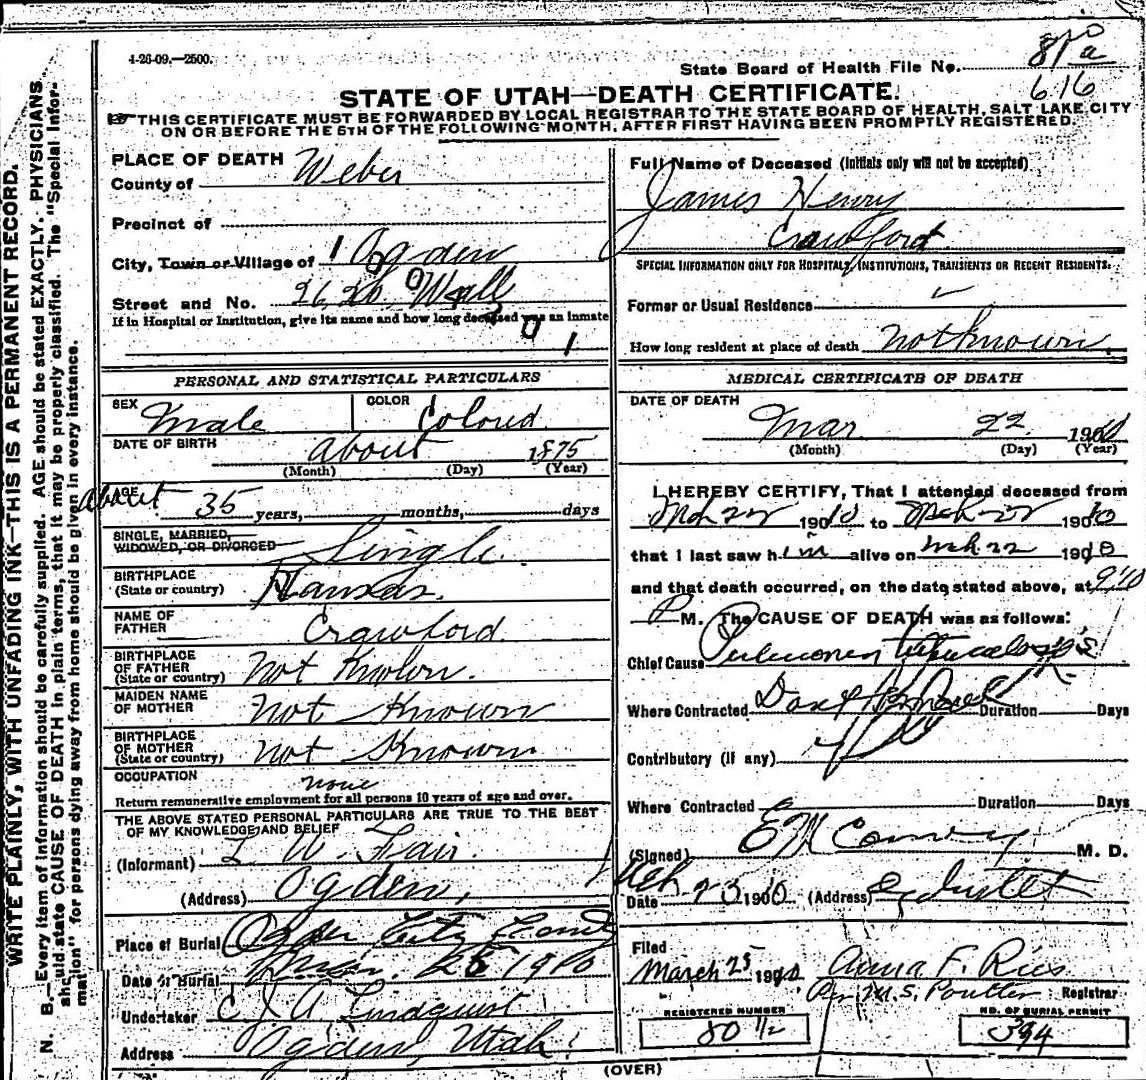 4-26-09.—2500.
State Board of Health File No. 81 a
616
STATE OF UTAH—DEATH CERTIFICATE.
THIS CERTIFICATE MUST BE FORWARDED BY LOCAL REGISTRAR TO THE STATE BOARD OF HEALTH, SALT LAKE CITY
ON OR BEFORE THE 5TH OF THE FOLLOWING MONTH, AFTER FIRST HAVING BEEN PROMPTLY REGISTERED.
WRITE PLAINLY, WITH UNFADING INK—THIS IS A PERMANENT RECORD.
N. B.—Every item of information should be carefully supplied. AGE should be stated EXACTLY. PHYSICIANS
should state CAUSE OF DEATH in plain terms, that it may be properly classified. The "Special Infor-
mation" for persons dying away from home should be given in every instance.
PLACE OF DEATH
County of Weber
Precinct of
City, Town or Village of Ogden
Street and No. 2620 Wall
If in Hospital or Institution, give its name and how long deceased was an inmate
PERSONAL AND STATISTICAL PARTICULARS
SEX Male COLOR Colored
DATE OF BIRTH about 1875
(Month) (Day) (Year)
AGE about 35 years, months, days
SINGLE, MARRIED,
WIDOWED, OR DIVORCED Single
BIRTHPLACE
(State or country) Kansas.
NAME OF
FATHER Crawford
BIRTHPLACE
OF FATHER
(State or country) Not Known.
MAIDEN NAME
OF MOTHER Not Known
BIRTHPLACE
OF MOTHER
(State or country) not Known
OCCUPATION none
Return remunerative employment for all persons 10 years of age and over.
THE ABOVE STATED PERSONAL PARTICULARS ARE TRUE TO THE BEST
OF MY KNOWLEDGE AND BELIEF
(Informant) L W. Fair.
(Address) Ogden,
Place of Burial Ogden City
Date of Burial 1910
Undertaker C. J. A. Lindquist
Address Ogden, Utah.
Full Name of Deceased (Initials only will not be accepted)
James Henry
Crawford
SPECIAL INFORMATION ONLY FOR HOSPITALS, INSTITUTIONS, TRANSIENTS OR RECENT RESIDENTS.
Former or Usual Residence
How long resident at place of death not known.
MEDICAL CERTIFICATE OF DEATH
DATE OF DEATH
Mar 22 1910
(Month) (Day) (Year)
I HEREBY CERTIFY, That I attended deceased from
Mch 22 1910 to Mch 22 1910
that I last saw him alive on Mch 22 1910
and that death occurred, on the date stated above, at 9:10
P M. The CAUSE OF DEATH was as follows:
Chief Cause Pulmonary tuberculosis
Where Contracted Duration Days
Contributory (if any)
Where Contracted Duration Days
(Signed) E M Conroy M. D.
Date Mch 23 1910 (Address)
Filed
March 25 1910 Anna F. Ries
Per M. S. Poulter Registrar
REGISTERED NUMBER
80 1/2
NO. OF BURIAL PERMIT
394
(OVER)